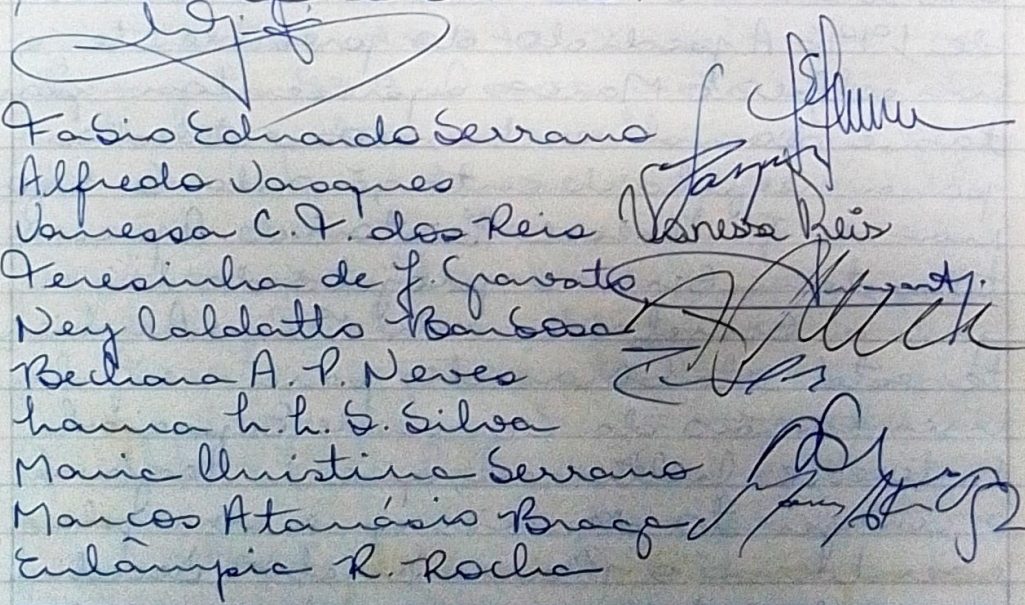 Fabio Eduardo Serrano
Alfredo Vasques
Vanessa C. F. dos Reis Vanessa Reis
Teresinha de J. Gravato
Ney Caldatto Barbosa
Bechara A. P. Neves
L. L. S. Silva
Maria Christina Serrano
Marcos Atanásio Braga
Eulâmpia R. Rocha